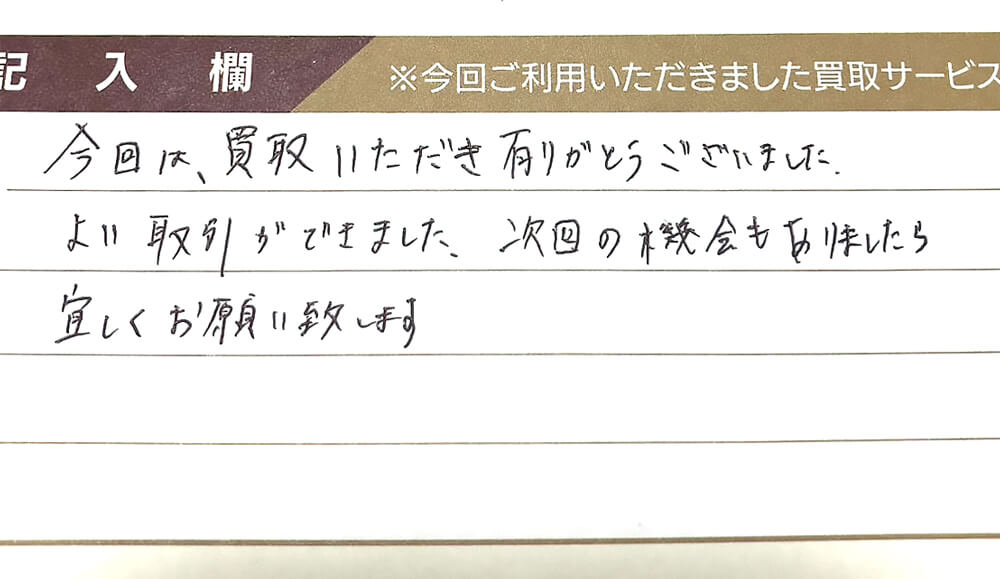 記入欄 ※今回ご利用いただきました買取サービス
今回は、買取いただき有りがとうございました.
よい取引ができました、次回の機会もありましたら
宜しくお願い致します